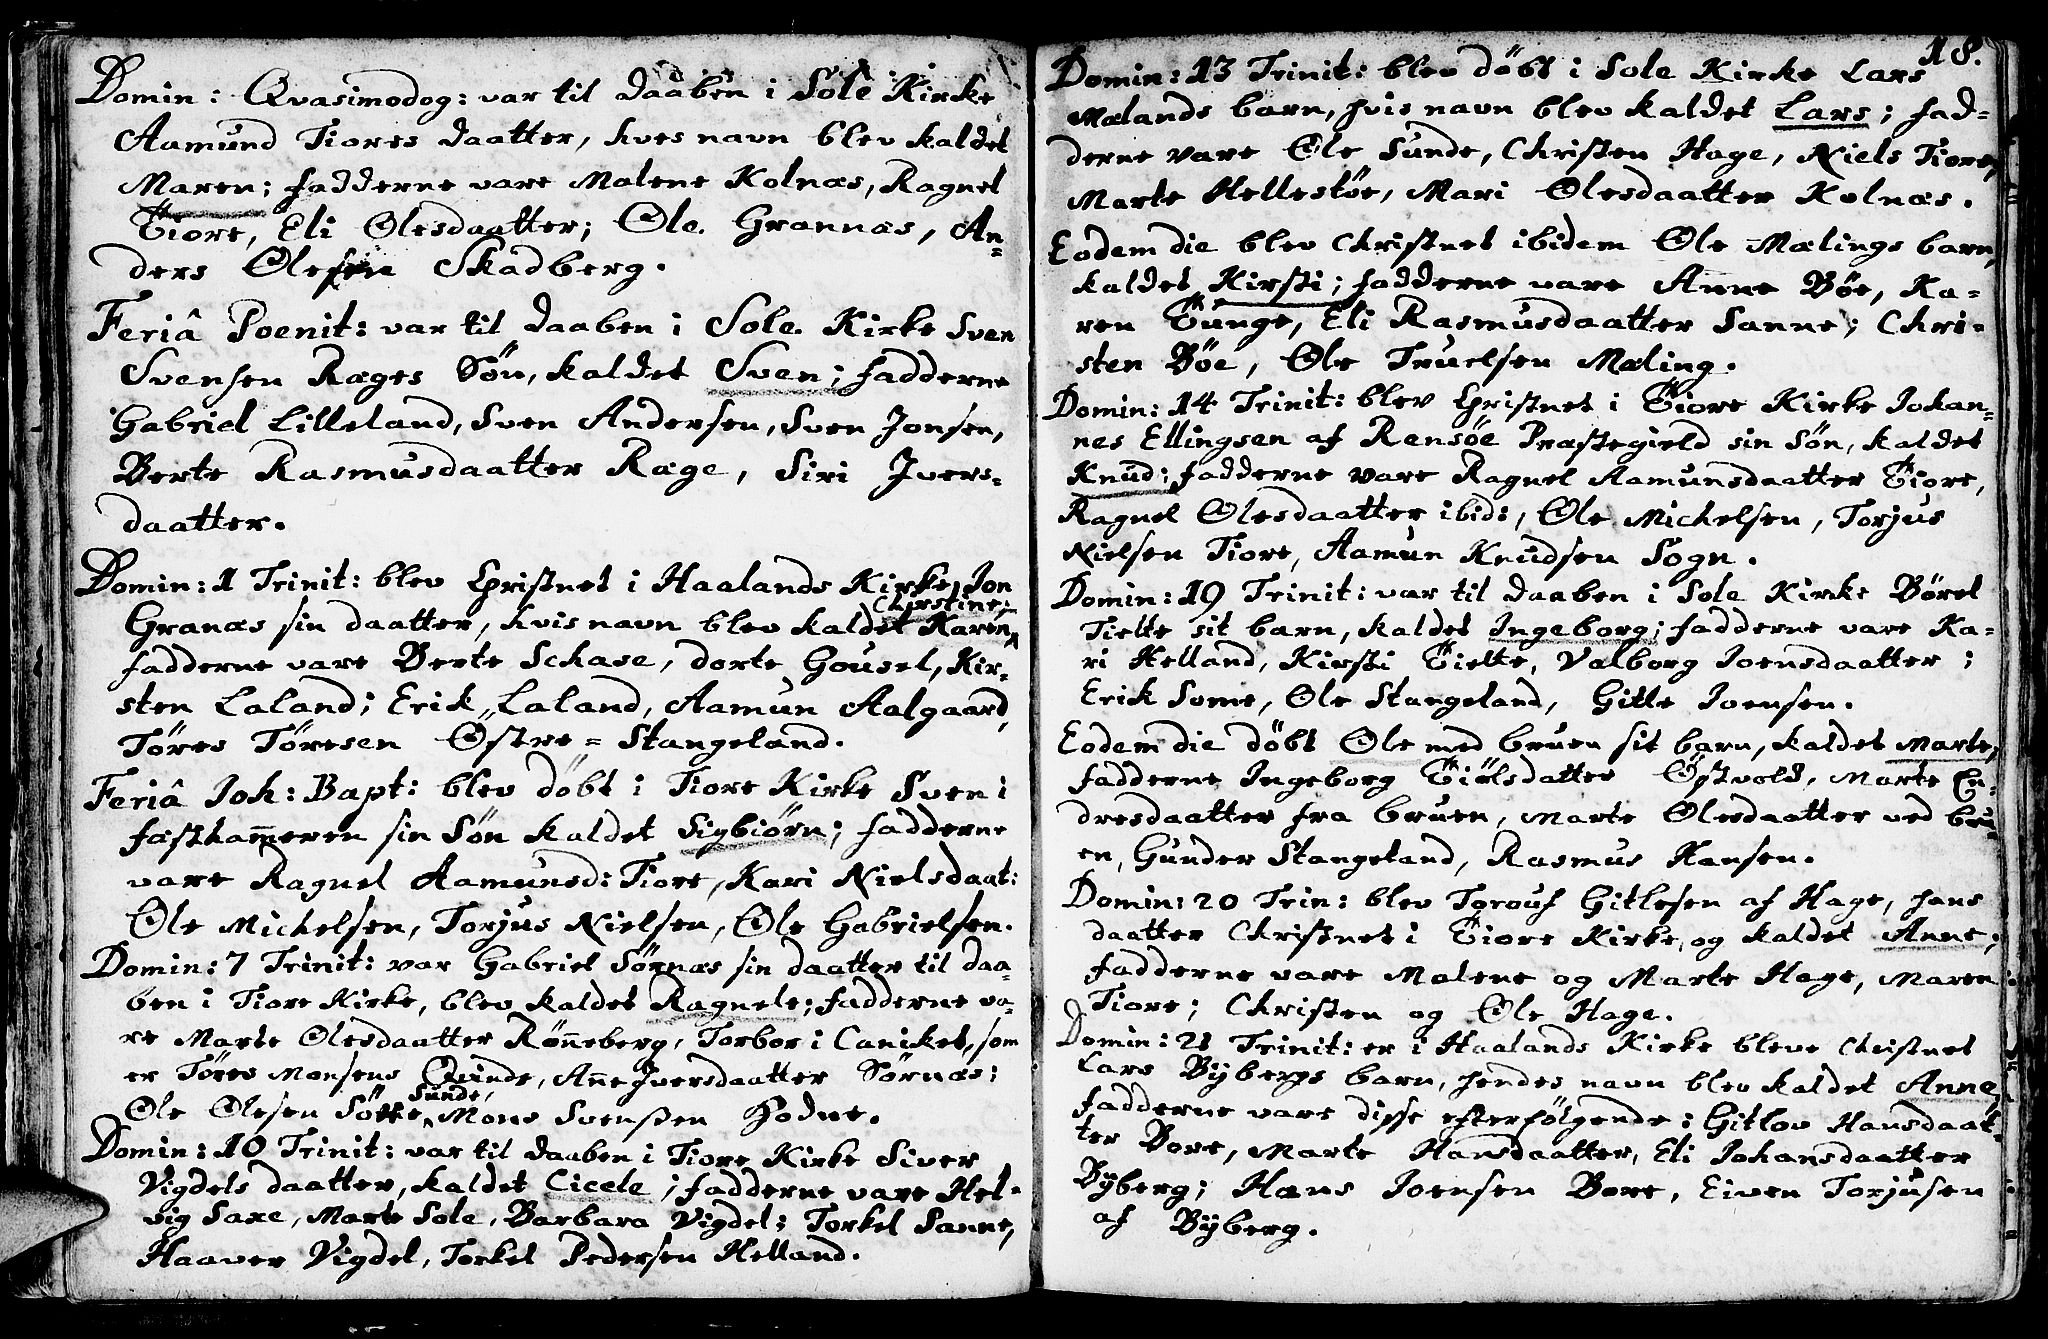 Domin: Qvasimodog: var til daaben i Sole Kirke
Aamund Tiores daatter, hves navn blev kaldet
Maren; fadderne vare Malene Kolnæs, Ragnel
Tiore, Eli Olesdaatter; Ole Grannæs, An=
ders Olesen Skadberg.
Feriâ Poenit: var til daaben i Sole Kirke Sven
Svensen Ræges Sön, kaldet Sven; fadderne
Gabriel Lilleland, Sven Andersen, Sven Jonsen,
Berte Rasmusdaatter Ræge, Siri Ivers=
daatter.
Domin: 1 Trinit: blev Christnet i Haalands Kirke Jon
Granæs sin daatter, hvis navn blev kaldet Karen Chirstine;
fadderne vare Berte Schase, dorte Gousel, Kir=
sten Laland; Erik Laland, Aamun Aalgaard,
Töres Töresen Östre=Stangeland.
Feriâ Joh: Bapt: blev döbt i Tiore Kirke Sven i
fæstham̄eren sin Sön kaldet Sigbiörn; fadderne
vare Ragnel Aamunsd: Tiore, Kari Nielsdaat:
Ole Michelsen, Torjus Nielsen, Ole Gabrielsen.
Domin: 7 Trinit: var Gabriel Sörnæs sin daatter til daa=
ben i Tiore Kirke, blev kaldet Ragnele; fadderne va=
re Marte Olesdaatter Rön̄eberg, Torbor i Caniket, som
er Töres Monsens Qvinde, An̄e Iversdaatter Sörnæs;
Ole Olesen Sötte Sunde, Mons Svensen Hodne.
Domin: 10 Trinit: var til daaben i Tiore Kirke Siver
Vigdels daatter, kaldet Cicele; fadderne vare Hel=
vig Saxe, Marte Sole, Barbara Vigdel; Torkel Sanne,
Haaver Vigdel, Torkel Pedersen Helland.
18.
Domin: 13 Trinit: blev döbt i Sole Kirke Lars
Mælands barn, hvis navn blev kaldet Lars; fad=
derne vare Ole Sunde, Christen Hage, Niels Tiore,
Marte Hellestöe, Mari Olesdaatter Kolnæs.
Eodem die blev Christnet ibidem Ole Mælings barn,
kaldet Kirsti; fadderne vare An̄ne Böe, Ka=
ren Tunge, Eli Rasmusdaatter Sanne; Chri=
sten Böe, Ole Truelsen Mæling.
Domin: 14 Trinit: blev Christnet i Tiore Kirke Johan=
nes Ellingsen af Rensöe Præstegield sin Sön, kaldet
Knud; fadderne vare Ragnel Aamunsdaatter Tiore,
Ragnel Olesdaatter ibid:, Ole Michelsen, Torjus
Nielsen Tiore, Aamun Knudsen Sogn.
Domin: 19 Trinit: var til daaben i Sole Kirke Börel
Tielte sit barn, kaldet Ingeborg; fadderne vare Ka=
ri Helland, Kirsti Tielte, Valborg Joensdaatter;
Erik Some, Ole Stangeland, Gitle Joensen.
Eodem die döbt Ole med bruen sit barn, kaldet Marte,
fadderne Ingeborg Tiölsdatter Östvold, Marte En=
dresdaatter fra bruen, Marte Olesdaatter ved bru=
en, Gunder Stangeland, Rasmus Hansen.
Domin: 20 Trin: blev Torouf Gitlesen af Hage, hans
daatter Christnet i Tiore Kirke, og kaldet Anne;
fadderne vare Malene og Marte Hage, Maren
Tiore; Christen og Ole Hage.
Domin: 21 Trinit: er i Haalands Kirke bleve Christnet
Lars Bÿbergs barn, hendes navn blev kaldet Anna,
fadderne vare disse efterfölgende: Gitlov Hansdaat=
ter Bore, Marte Hansdaatter, Eli Johansdaatter
Bÿberg; Hans Joensen Bore, Eiven Torjusen
af Bÿberg.